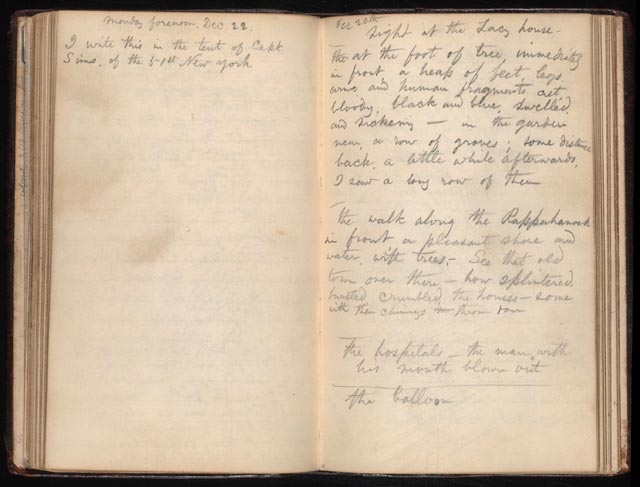 Monday forenoon, Dec. 22.
I write this in the tent of Capt.
Sims, of the 51st New york
Dec 20th
Sight at the Lacy house –
the at the foot of tree, immediately
in front, a heap of feet, legs,
arms and human fragments, cut,
bloody, black and blue, swelled
and sickening — in the garden
near, a row of graves; some distance
back, a little while afterwards,
I saw a long row of them
the walk along the Rappahannock
in front a pleasant shore and
water, with trees,– See that old
town over there – how splintered
bursted crumbled the houses – some
with their chimneys thrown down
the hospitals – the man with
his mouth blown out
the balloon